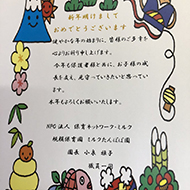 新年明けまして
おめでとうございます
健やかな年の始まりに、皆様のご多幸を
心よりお祈り申し上げます。
今年も保護者様と共に、お子様の成
長を支え、見守っていきたいと思ってい
ます。
本年もよろしくお願いいたします。
NPO法人 保育ネットワーク・ミルク
小規模保育園 ミルクたんぽぽ園
園長 小泉
職員一同